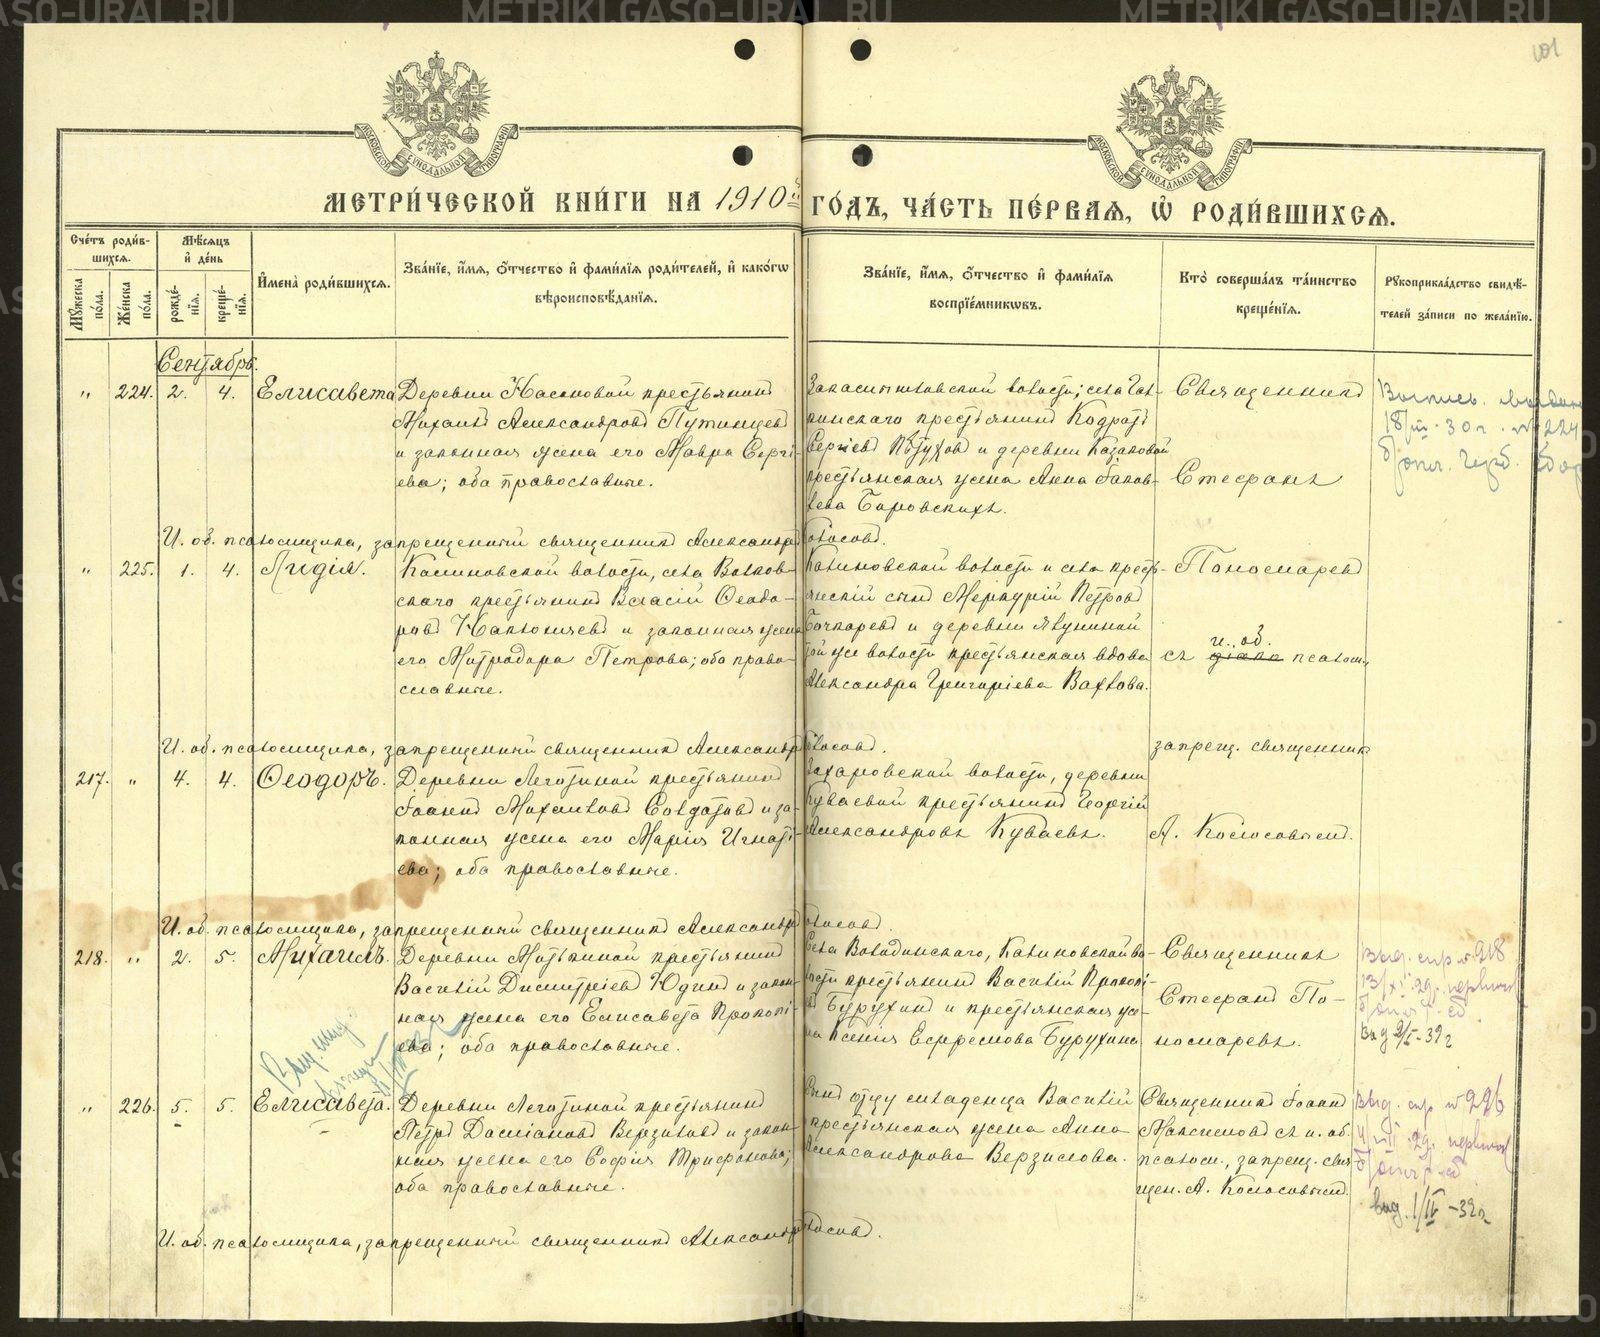 101
МОСКОВСКОЙ СѴНОДАЛЬНОЙ ТИПОГРАФІИ
МОСКОВСКОЙ СѴНОДАЛЬНОЙ ТИПОГРАФІИ
МЕТРИ́ЧЕСКОЙ КНИ́ГИ НА 1910й ГО́ДЪ, ЧА́СТЬ ПЕ́РВАѦ, Ѽ РОДИ́ВШИХСѦ.
Сче́тъ роди́вшихсѧ.
Мꙋ́жеска по́ла.
Же́нска по́ла.
Мѣ́сѧцъ и҆ де́нь
рожде́нїѧ.
креще́нїѧ.
И҆мена̀ роди́вшихсѧ.
Зва́нїе, и҆́мѧ, ѻ҆́тчество и҆ фами́лїѧ роди́телей, и҆ како́гѡ
вѣроисповѣ́данїѧ.
Зва́нїе, и҆́мѧ, ѻ҆́тчество и҆ фами́лїѧ
воспрїе́мникѡвъ.
Кто̀ соверша́лъ та́инство
креще́нїѧ.
Рꙋкоприкла́дство свидѣ́-
телей за́писи по жела́нїю.
Сентябрь.
" 224. 2. 4. Елисавета
Деревни Касановой крестьянинъ
Михаилъ Александровъ Путинцевъ
и законная жена его Мавра Сергі-
ева; оба православные.
волости; села
кинскаго крестьянинъ Кодратъ
Сергіевъ Пѣтуховъ и деревни Казаковой
крестьянская жена Анна Іаков-
лева Боровскихъ.
Священникъ
Стефанъ
18/III-30 г. № 224
И. об. псаломщика, запрещенный священникъ Александръ
" 225. 1. 4. Лидія.
Калиновской волости, села Волков-
скаго крестьянинъ Власій Ѳеодо-
ровъ и законная жена
его Митродора Петрова; оба право-
славные.
Калиновской волости и села кресть-
янскій сынъ Меркурій Петровъ
Бочкаревъ и деревни Явуниной
той же волости крестьянская вдова
Александра Григоріева Вахлова.
Пономаревъ
и. об.
съ псалом.
И. об. псаломщика, запрещенный священникъ Александръ
запрещ. священник
217. " 4. 4. Ѳеодоръ.
Деревни Леготиной крестьянинъ
Іоаннъ Михаиловъ Солдатовъ и за-
конная жена его Марія Игнаті-
ева; оба православные.
Захаровской волости, деревни
Куваевой крестьянинъ Георгій
Александровъ Куваевъ.
А. Колосовымъ.
И. об. псаломщика, запрещенный священникъ Александръ
218. " 2. 5. Михаилъ.
Деревни Митькиной крестьянинъ
Василій Димитріевъ Юдинъ и закон-
ная жена его Елисавета Прокопі-
ева; оба православные.
Села Володинскаго, Калиновской во-
лости крестьянинъ Василій Прокопі-
въ Бурухинъ и крестьянская же-
на Ксенія Ефремова Бурухина
Священникъ
Стефанъ По-
номаревъ.
Выд. спр № 218
Выд 2/I-32 г
" 226. 5. 5. Елисавета.
Деревни Леготиной крестьянинъ
Петръ Даміановъ Верзиловъ и закон-
ная жена его Софія Трифонова;
оба православные.
отцу младенца Василій
крестьянская жена Анна
Александрова Верзилова.
Священникъ Іоаннъ
Максимовъ съ и. об.
псалом., запрещ. свя
щен. А. Колосовымъ.
Выд. спр № 226
выд. 1/IV-32 г
И. об. псаломщика, запрещенный священникъ Александръ
METRIKI.GASO-URAL.RU